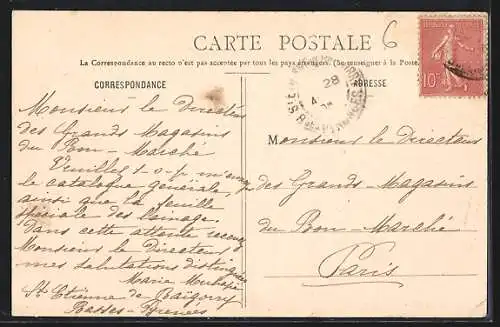 CARTE POSTALE
6
La Correspondance au recto n'est pas acceptée par tous les pays étrangers. (Se renseigner à la Poste.)
CORRESPONDANCE
ADRESSE
28
10
Monsieur le Directeur
des Grands Magasins
du Bon-Marché
Veuillez s-v-p, m'envoyer
le catalogue générale
ainsi que la feuille
spéciale des lainage.
Dans cette attente recevez
Monsieur le Directeur
mes salutations distinguées
Maria
St Etienne de Baïgorry
Basses-Pyrénées
Monsieur le Directeur
des Grands-Magasins
du Bon-Marché
Paris